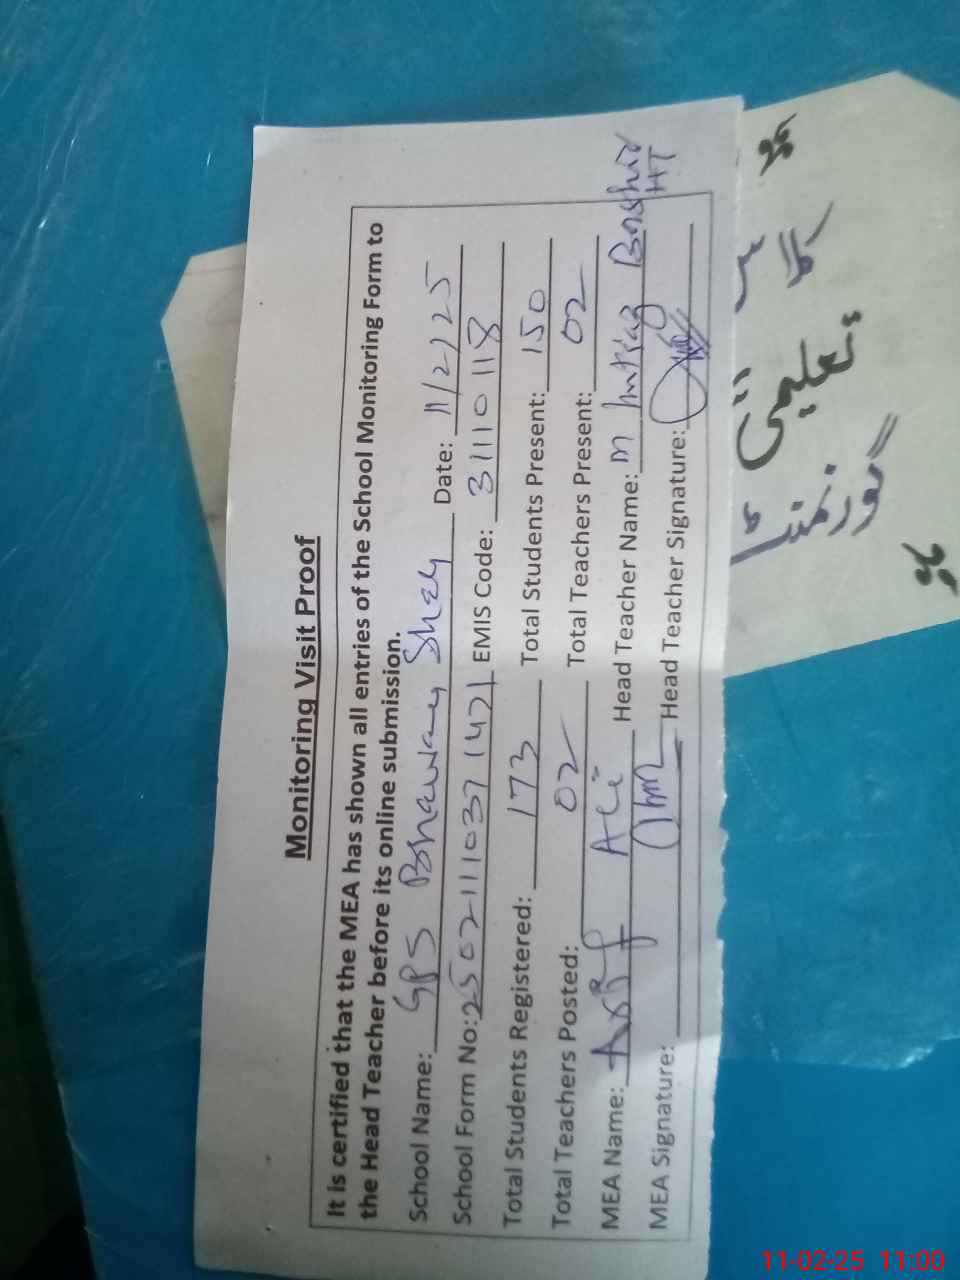 Monitoring Visit Proof
It is certified that the MEA has shown all entries of the School Monitoring Form to
the Head Teacher before its online submission.
School Name: GPS Bhawany Shah Date: 11/2/25
School Form No: 25021110371421 EMIS Code: 31110118
Total Students Registered: 173 Total Students Present: 150
Total Teachers Posted: 02 Total Teachers Present: 02
MEA Name: Ali Head Teacher Name: M Imtiaz Bashir
HT
MEA Signature: Head Teacher Signature:
گورنمنٹ
تعلیمی
11-02-25 11:00